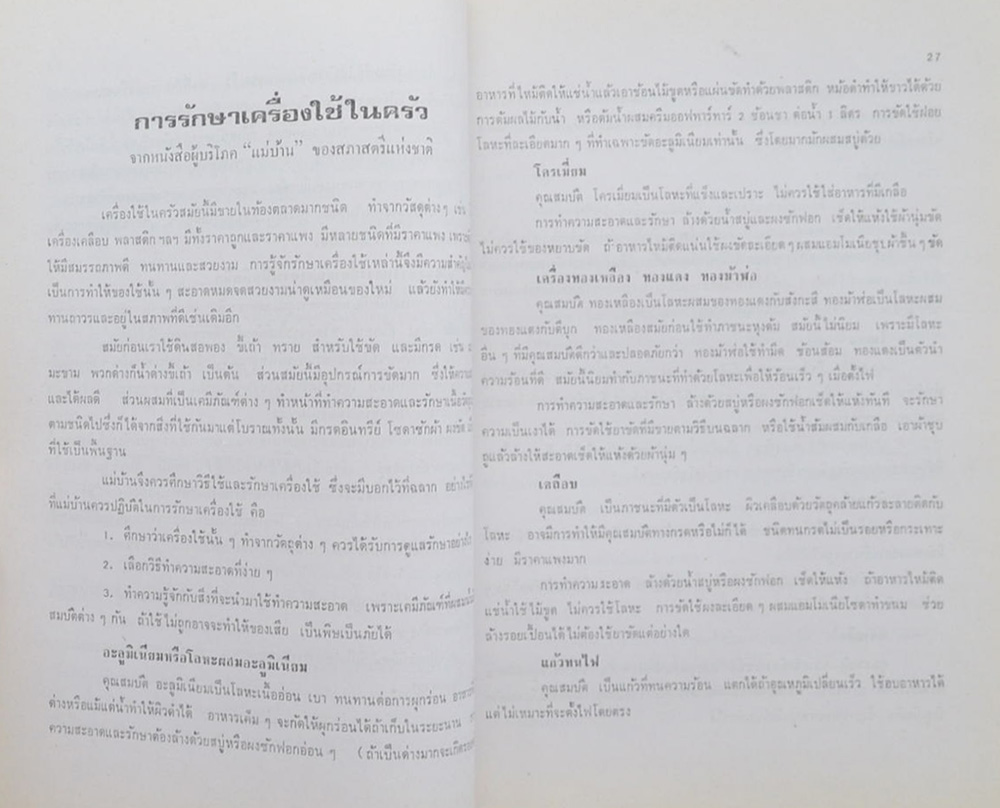 การรักษาเครื่องใช้ในครัว
จากหนังสือผู้บริโภค "แม่บ้าน" ของสภาสตรีแห่งชาติ
เครื่องใช้ในครัวสมัยนี้มีขายในท้องตลาดมากชนิด ทำจากวัสดุต่างๆ เช่น
เครื่องเคลือบ พลาสติก ฯลฯ มีทั้งราคาถูกและราคาแพง มีหลายชนิดที่มีราคาแพง เพราะ
ให้มีสมรรถภาพดี ทนทานและสวยงาม การรู้จักรักษาเครื่องใช้เหล่านี้จึงมีความสำคัญ
เป็นการทำให้ของใช้นั้น ๆ สะอาดหมดจดสวยงามน่าดูเหมือนของใหม่ แล้วยังทำให้
ทานถาวรและอยู่ในสภาพที่ดีเช่นเดิมอีก
สมัยก่อนเราใช้ดินสอพอง ขี้เถ้า ทราย สำหรับใช้ขัด และมีกรด เช่น
มะขาม พวกด่างก็น้ำด่างขี้เถ้า เป็นต้น ส่วนสมัยนี้มีอุปกรณ์การขัดมาก ซึ่งให้ความ
และได้ผลดี ส่วนผสมที่เป็นเคมีภัณฑ์ต่าง ๆ ทำหน้าที่ทำความสะอาดและรักษาเนื้อ
ตามชนิดไปซึ่งก็ได้จากสิ่งที่ใช้กันมาแต่โบราณทั้งนั้น มีกรดอินทรีย์ โซดาซักผ้า ผงขัด
ที่ใช้เป็นพื้นฐาน
แม่บ้านจึงควรศึกษาวิธีใช้และรักษาเครื่องใช้ ซึ่งจะมีบอกไว้ที่ฉลาก อย่างไร
ที่แม่บ้านควรปฏิบัติในการรักษาเครื่องใช้ คือ
1. ศึกษาว่าเครื่องใช้นั้น ๆ ทำจากวัตถุต่าง ๆ ควรได้รับการดูแลรักษาอย่างไร
2. เลือกวิธีทำความสะอาดที่ง่าย ๆ
3. ทำความรู้จักกับสิ่งที่จะนำมาใช้ทำความสะอาด เพราะเคมีภัณฑ์ที่ผสม
สมบัติต่าง ๆ กัน ถ้าใช้ไม่ถูกอาจจะทำให้ของเสีย เป็นพิษเป็นภัยได้
อะลูมิเนียมหรือโลหะผสมอะลูมิเนียม
คุณสมบัติ อะลูมิเนียมเป็นโลหะเนื้ออ่อน เบา ทนทานต่อการผุกร่อน
ด่างหรือแม้แต่น้ำทำให้ผิวดำได้ อาหารเค็ม ๆ จะกัดให้ผุกร่อนได้ถ้าเก็บในระยะนาน
ความสะอาดและรักษาต้องล้างด้วยสบู่หรือผงซักฟอกอ่อน ๆ (ถ้าเป็นด่างมากจะเกิด
27
อาหารที่ไหม้ติดให้แช่น้ำแล้วเอาช้อนไม้ขูดหรือแผ่นขัดทำด้วยพลาสติก หม้อดำทำให้ขาวได้ด้วย
การต้มผลไม้กับน้ำ หรือต้มน้ำผสมครีมออฟทาร์ทาร์ 2 ช้อนชา ต่อน้ำ 1 ลิตร การขัดใช้ฝอย
โลหะที่ละเอียดมาก ๆ ที่ทำเฉพาะขัดอะลูมิเนียมเท่านั้น ซึ่งโดยมากมักผสมสบู่ด้วย
โครเมี่ยม
คุณสมบัติ โครเมี่ยมเป็นโลหะที่แข็งและเปราะ ไม่ควรใช้ใส่อาหารที่มีเกลือ
การทำความสะอาดและรักษา ล้างด้วยน้ำสบู่และผงซักฟอก เช็ดให้แห้งใช้ผ้านุ่มขัด
ไม่ควรใช้ของหยาบขัด ถ้าอาหารไหม้ติดแน่นใช้ผงขัดละเอียด ๆ ผสมแอมโมเนียชุบผ้าชื้น ๆ ขัด
เครื่องทองเหลือง ทองแดง ทองม้าฬ่อ
คุณสมบัติ ทองเหลืองเป็นโลหะผสมของทองแดงกับสังกะสี ทองม้าฬ่อเป็นโลหะผสม
ของทองแดงกับดีบุก ทองเหลืองสมัยก่อนใช้ทำภาชนะหุงต้ม สมัยนี้ไม่นิยม เพราะมีโลหะ
อื่น ๆ ที่มีคุณสมบัติดีกว่าและปลอดภัยกว่า ทองม้าฬ่อใช้ทำมีด ช้อนส้อม ทองแดงเป็นตัวนำ
ความร้อนที่ดี สมัยนี้นิยมทำกับภาชนะที่ทำด้วยโลหะเพื่อให้ร้อนเร็ว ๆ เมื่อตั้งไฟ
การทำความสะอาดและรักษา ล้างด้วยสบู่หรือผงซักฟอกเช็ดให้แห้งทันที จะรักษา
ความเป็นเงาได้ การขัดใช้ยาขัดที่มีขายตามวิธีบนฉลาก หรือใช้น้ำส้มผสมกับเกลือ เอาผ้าชุบ
ถูแล้วล้างให้สะอาดเช็ดให้แห้งด้วยผ้านุ่ม ๆ
เคลือบ
คุณสมบัติ เป็นภาชนะที่มีตัวเป็นโลหะ ผิวเคลือบด้วยวัตถุคล้ายแก้วละลายติดกับ
โลหะ อาจมีการทำให้มีคุณสมบัติทางกรดหรือไม่ก็ได้ ชนิดทนกรดไม่เป็นรอยหรือกระเทาะ
ง่าย มีราคาแพงมาก
การทำความสะอาด ล้างด้วยน้ำสบู่หรือผงซักฟอก เช็ดให้แห้ง ถ้าอาหารไหม้ติด
แช่น้ำใช้ไม้ขูด ไม่ควรใช้โลหะ การขัดใช้ผงละเอียด ๆ ผสมแอมโมเนียโซดาทำขนม ช่วย
ล้างรอยเปื้อนได้ ไม่ต้องใช้ยาขัดแต่อย่างใด
แก้วทนไฟ
คุณสมบัติ เป็นแก้วที่ทนความร้อน แตกได้ถ้าอุณหภูมิเปลี่ยนเร็ว ใช้อบอาหารได้
แต่ไม่เหมาะที่จะตั้งไฟโดยตรง